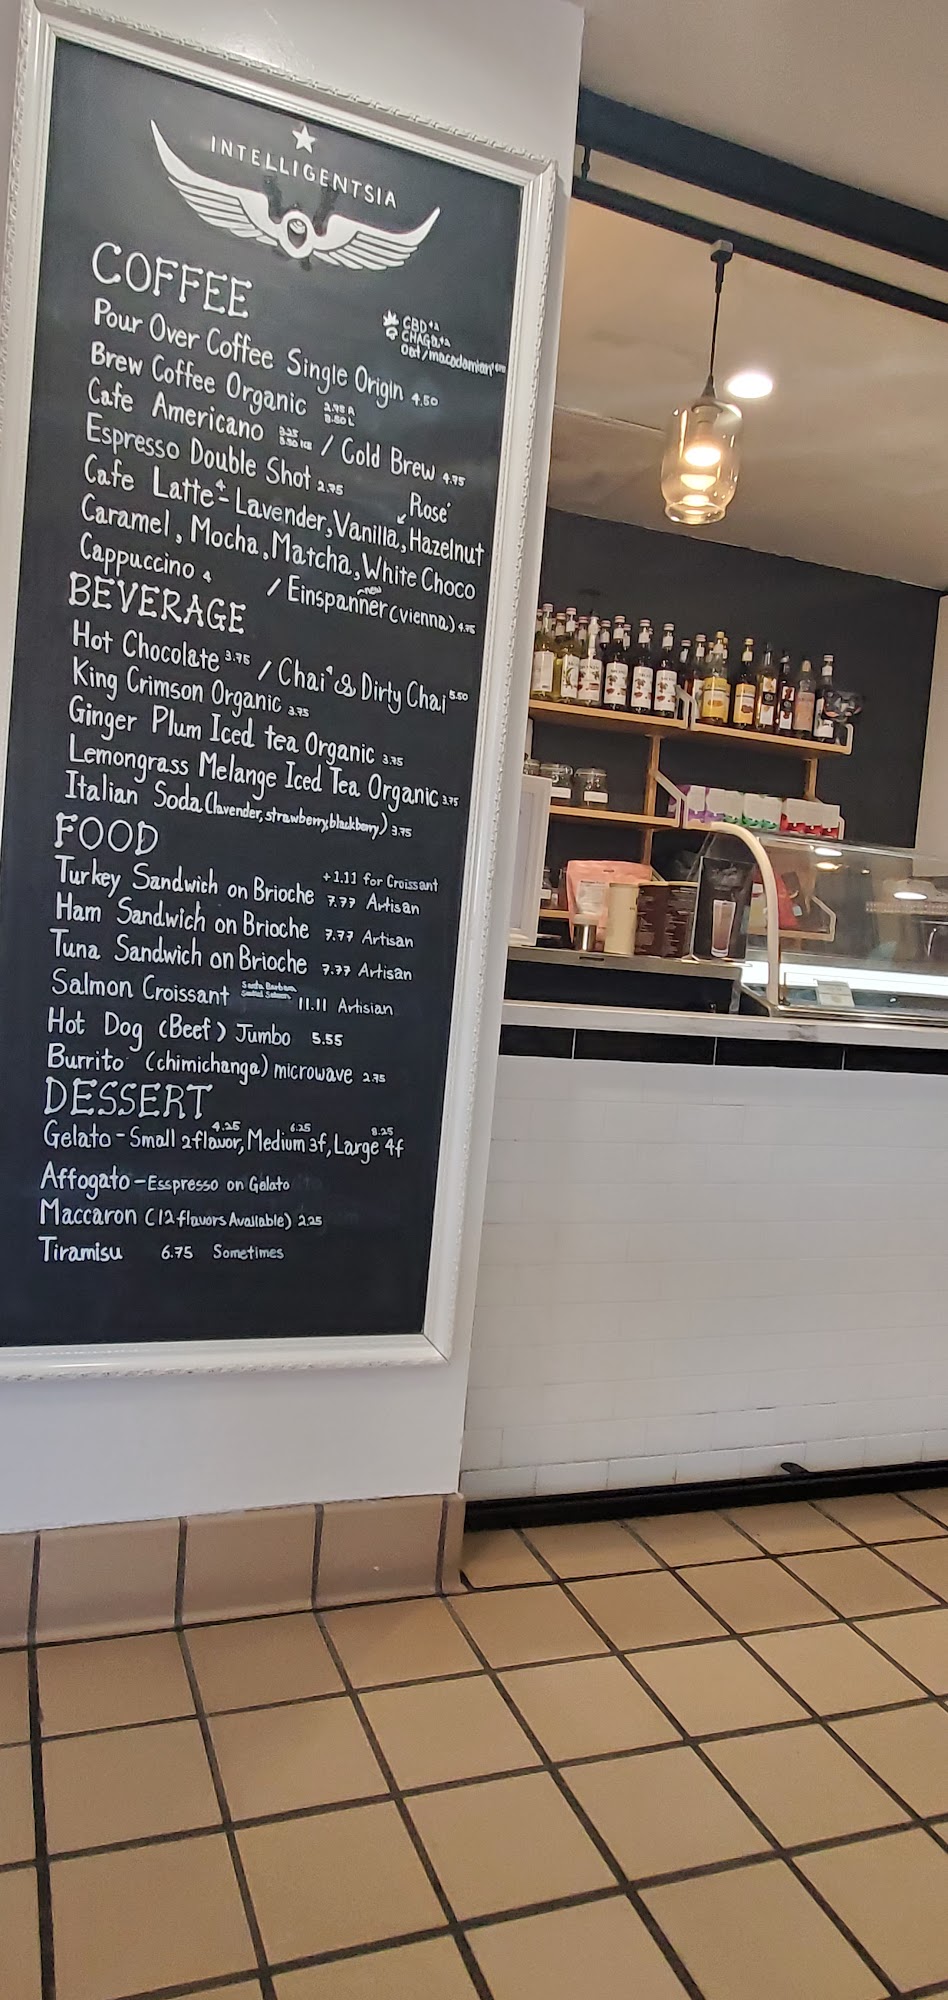 INTELLIGENTSIA
COFFEE
CBD
CHAGA
Oat/macadamian
Pour Over Coffee Single Origin 4.50
Brew Coffee Organic 2.95 R
3.50 L
Cafe Americano 3.25 / Cold Brew 4.75
3.50 ICE
Espresso Double Shot 2.75
Rosé
Cafe Latte 4 - Lavender, Vanilla, Hazelnut
Caramel, Mocha, Matcha, White Choco
Cappuccino 4 / Einspanner (vienna) 4.75
new
BEVERAGE
Hot Chocolate 3.75 / Chai 4 & Dirty Chai 5.50
King Crimson Organic 3.75
Ginger Plum Iced tea Organic 3.75
Lemongrass Melange Iced Tea Organic 3.75
Italian Soda (lavender, strawberry, blackberry) 3.75
FOOD
+1.11 for Croissant
Turkey Sandwich on Brioche 7.77 Artisan
Ham Sandwich on Brioche 7.77 Artisan
Tuna Sandwich on Brioche 7.77 Artisan
Salmon Croissant Santa Barbara 11.11 Artisian
Hot Dog (Beef) Jumbo 5.55
Burrito (chimichanga) microwave 2.75
DESSERT
4.25 6.25 8.25
Gelato - Small 2 flavor, Medium 3f, Large 4f
Affogato - Esspresso on Gelato
Maccaron (12 flavors Available) 2.25
Tiramisu 6.75 Sometimes